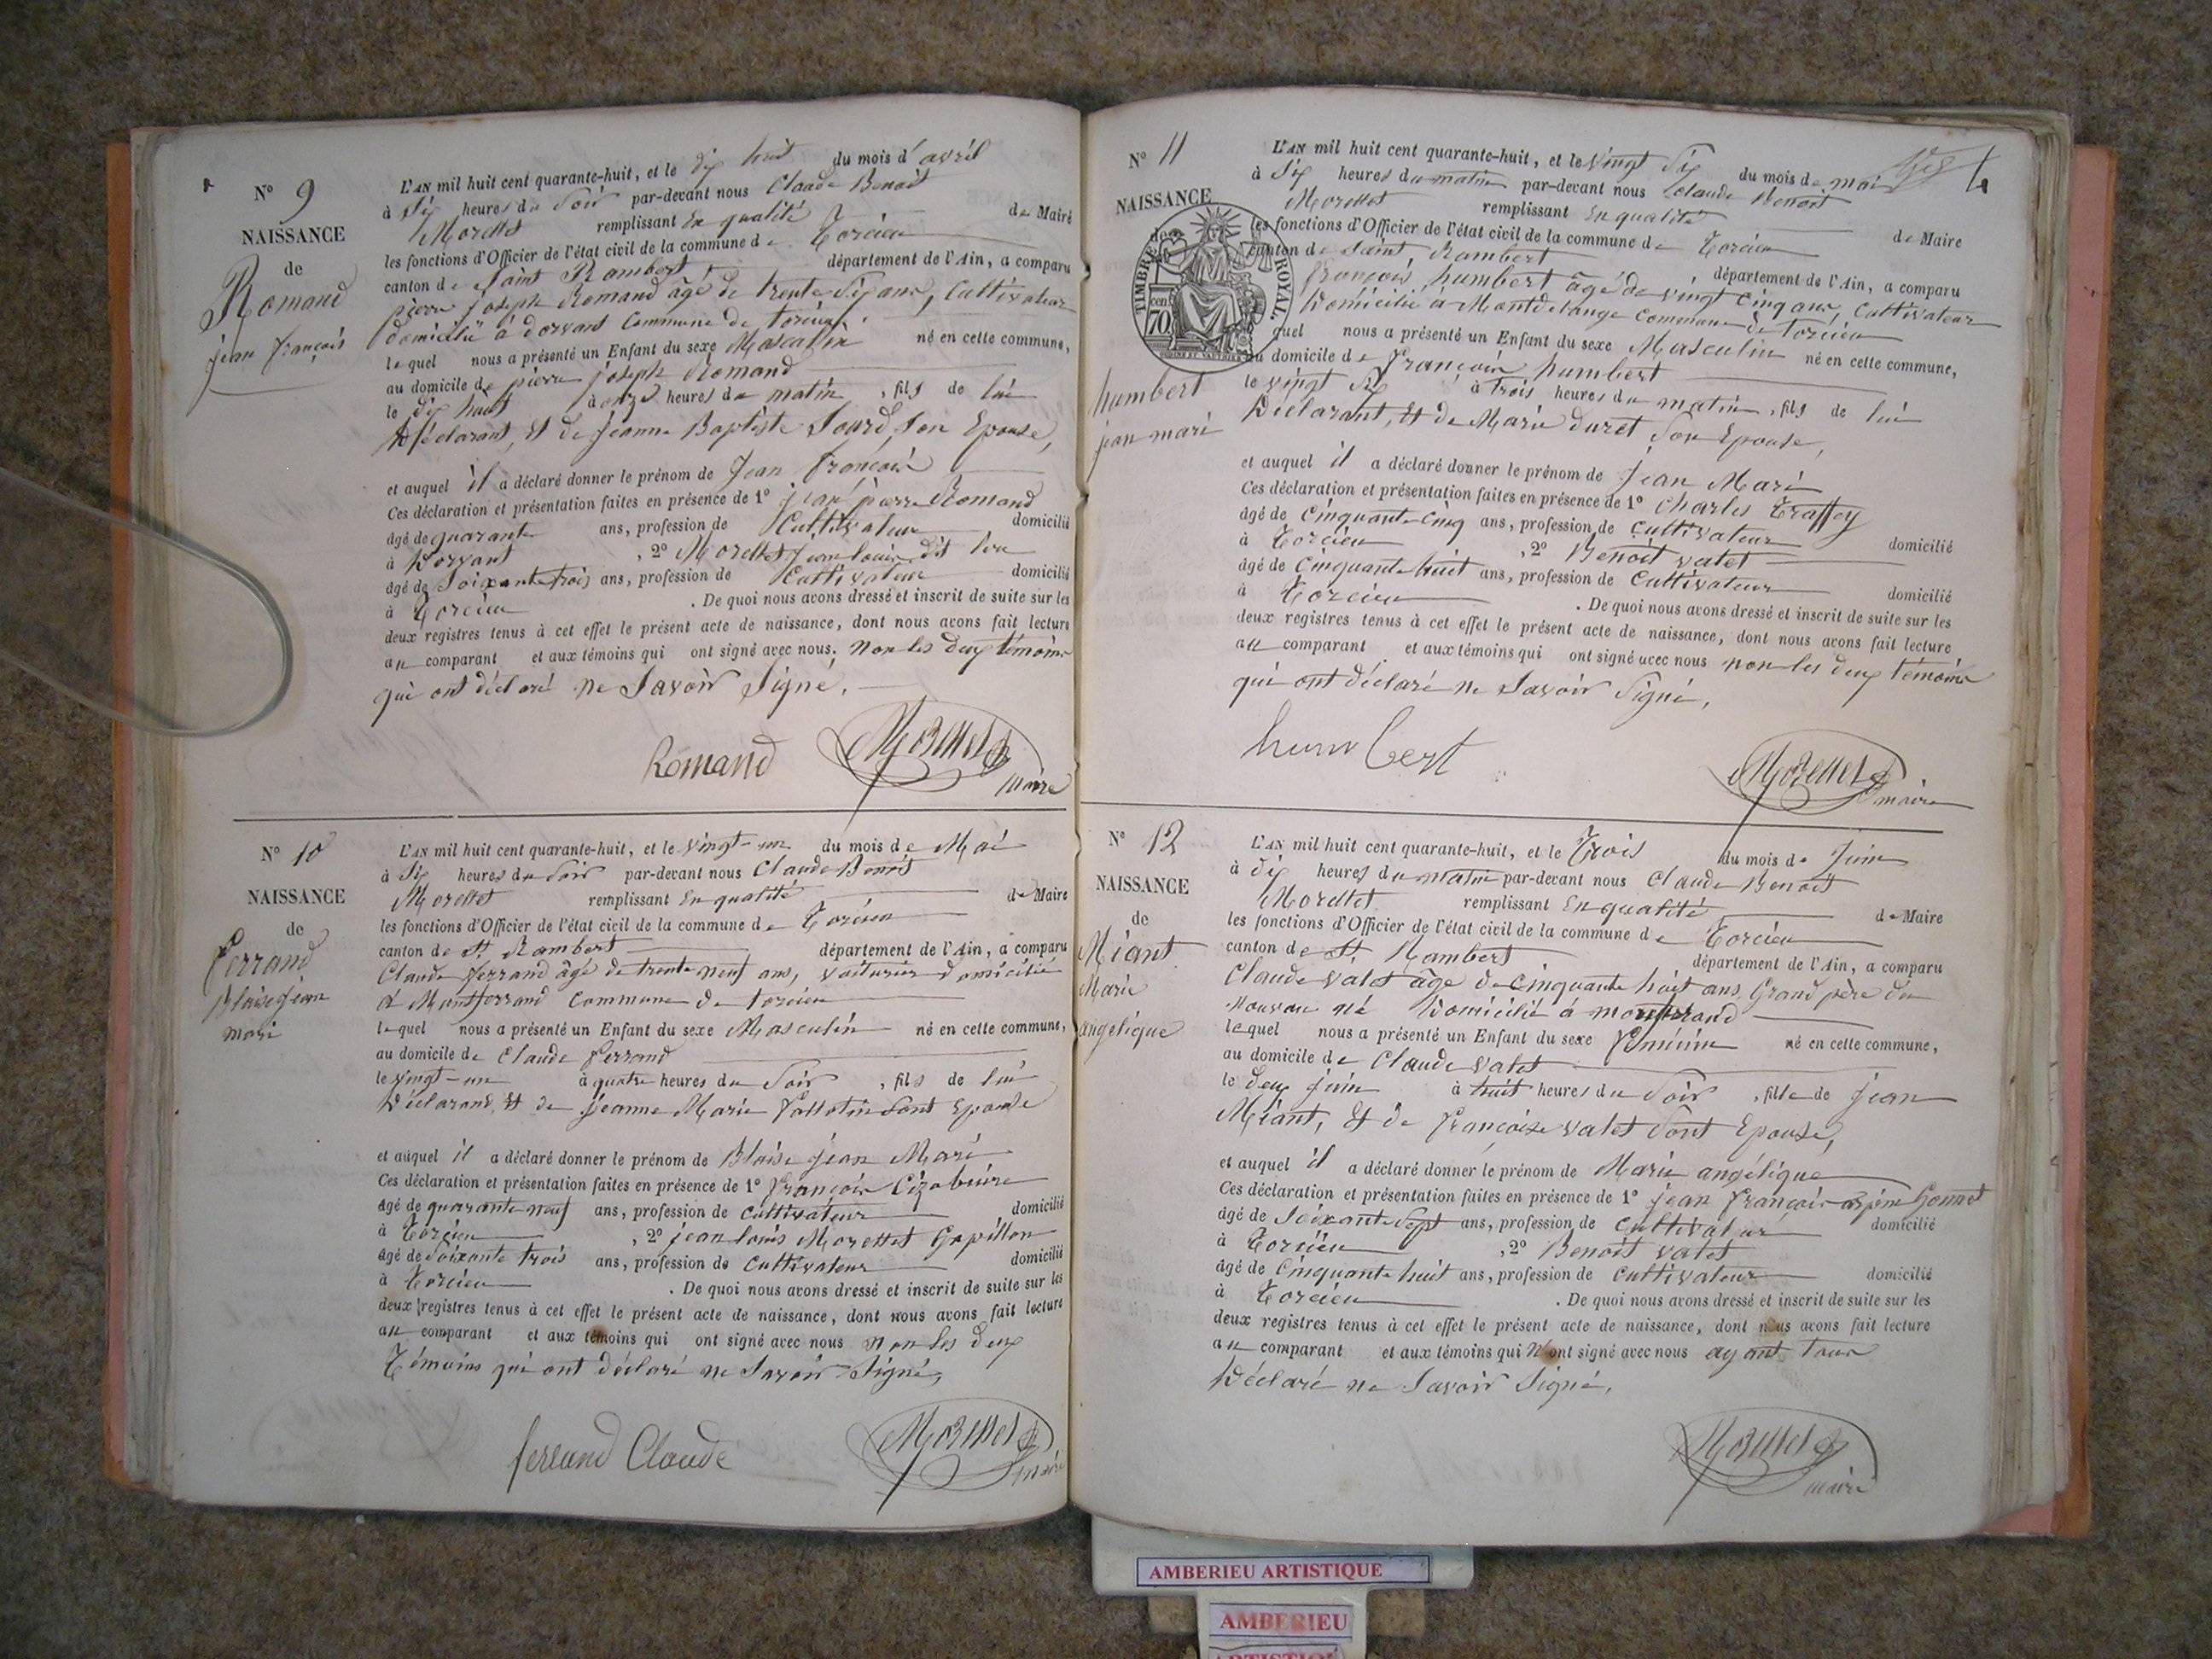 N° 9
NAISSANCE
de
Romand
jean françois
L'AN mil huit cent quarante-huit, et le dix huit du mois d'avril
à six heures du soir par-devant nous Claude Benoit
Morettet remplissant en qualité de Maire
les fonctions d'Officier de l'état civil de la commune de Torcieu
canton de Saint Rambert département de l'Ain, a comparu
pierre joseph Romand âgé de trente six ans, Cultivateur
domicilié à dorvant Commune de torcieu.
lequel nous a présenté un Enfant du sexe Masculin né en cette commune,
au domicile de pierre joseph Romand
le dix huit à onze heures du matin, fils de lui
Déclarant, Et de jeanne Baptiste Sourd, son Epouse,
et auquel il a déclaré donner le prénom de Jean françois
Ces déclaration et présentation faites en présence de 1° jean pierre Romand
âgé de quarante ans, profession de Cultivateur domicilié
à Dorvant, 2° Morettet Jean louis dit
âgé de Soixante trois ans, profession de Cultivateur domicilié
à Torcieu. De quoi nous avons dressé et inscrit de suite sur les
deux registres tenus à cet effet le présent acte de naissance, dont nous avons fait lecture
au comparant et aux témoins qui ont signé avec nous. non les deux témoins
qui ont déclaré ne Savoir Signé.
Romand Morettet
maire
N° 10
NAISSANCE
de
Ferrand
Blaise jean
mari
L'AN mil huit cent quarante-huit, et le vingt-un du mois de Mai
à six heures du soir par-devant nous Claude Benoit
Morettet remplissant En qualité de Maire
les fonctions d'Officier de l'état civil de la commune de Torcieu
canton de St Rambert département de l'Ain, a comparu
Claude ferrand âgé de trente neuf ans, voiturier domicilié
à Montferrand Commune de torcieu
lequel nous a présenté un Enfant du sexe Masculin né en cette commune,
au domicile de Claude ferrand
le vingt-un à quatre heures du Soir, fils de lui
Déclarant, Et de jeanne Marie Sont Epouse
et auquel il a déclaré donner le prénom de Blaise jean Mari
Ces déclaration et présentation faites en présence de 1° françois
âgé de quarante neuf ans, profession de Cultivateur domicilié
à Torcieu, 2° jean louis Morettet Gapillon
âgé de Soixante trois ans, profession de Cultivateur domicilié
à Torcieu. De quoi nous avons dressé et inscrit de suite sur les
deux registres tenus à cet effet le présent acte de naissance, dont nous avons fait lecture
au comparant et aux témoins qui ont signé avec nous non les deux
Témoins qui ont déclaré ne Savoir Signé,
ferrand Claude Morettet
maire
N° 11
NAISSANCE
de
humbert
jean mari
TIMBRE ROYAL
70 cen
L'AN mil huit cent quarante-huit, et le vingt six du mois de mai
à six heures du matin par-devant nous Claude Benoit
Morettet remplissant En qualité de Maire
les fonctions d'Officier de l'état civil de la commune de Torcieu
canton de Saint Rambert, département de l'Ain, a comparu
françois humbert âgé de vingt cinq ans, Cultivateur
Domicilié à Montdelange Commune de torcieu
quel nous a présenté un Enfant du sexe Masculin né en cette commune,
au domicile de françois humbert
le vingt six à trois heures du matin, fils de lui
Déclarant, Et de Marie duret Son Epouse,
et auquel il a déclaré donner le prénom de Jean Mari
Ces déclaration et présentation faites en présence de 1° Charles Traffey
âgé de Cinquante-Cinq ans, profession de Cultivateur domicilié
à Torcieu, 2° Benoit valet
âgé de Cinquante huit ans, profession de Cultivateur domicilié
à Torcieu. De quoi nous avons dressé et inscrit de suite sur les
deux registres tenus à cet effet le présent acte de naissance, dont nous avons fait lecture
au comparant et aux témoins qui ont signé avec nous non les deux témoins
qui ont déclaré ne Savoir Signé,
humbert Morettet
maire
N° 12
NAISSANCE
de
Miant
Marie
angelique
L'AN mil huit cent quarante-huit, et le Trois du mois de Juin
à dix heures du matin par-devant nous Claude Benoit
Morettet remplissant En qualité de Maire
les fonctions d'Officier de l'état civil de la commune de Torcieu
canton de St Rambert département de l'Ain, a comparu
Claude valet âgé de Cinquante huit ans, Grand père du
Nouveau né Domicilié à montferrand
lequel nous a présenté un Enfant du sexe féminin né en cette commune,
au domicile de Claude valet
le deux juin à huit heures du Soir, fille de jean
Miant, Et de françoise valet Sont Epouse,
et auquel il a déclaré donner le prénom de Marie angélique
Ces déclaration et présentation faites en présence de 1° jean françois Gonnet
âgé de Soixante Sept ans, profession de Cultivateur domicilié
à Torcieu, 2° Benoit valet
âgé de Cinquante huit ans, profession de Cultivateur domicilié
à Torcieu. De quoi nous avons dressé et inscrit de suite sur les
deux registres tenus à cet effet le présent acte de naissance, dont nous avons fait lecture
au comparant et aux témoins qui N'ont signé avec nous ayant tous
Déclaré ne Savoir Signé.
Morettet
maire
AMBERIEU ARTISTIQUE
AMBERIEU
ARTISTIQUE